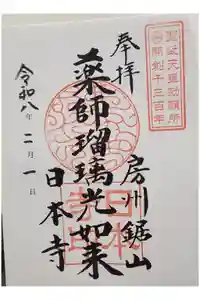 奉拝
聖武天皇勅願所
開創千三百年
薬師瑠璃光如来
房州鋸山
日本寺
令和八年二月一日